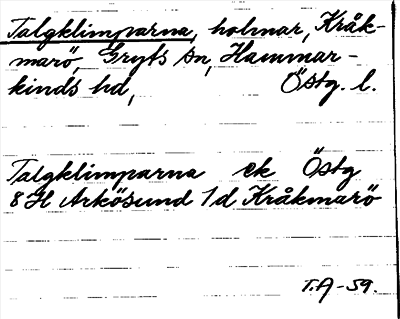 Talgklimparna, holmar, Kråk-
marö, Gryts sn, Hammar-
kinds hd, Östg. l.
Talgklimparna ek Östg
8H Arkösund 1d Kråkmarö
T.A-59.